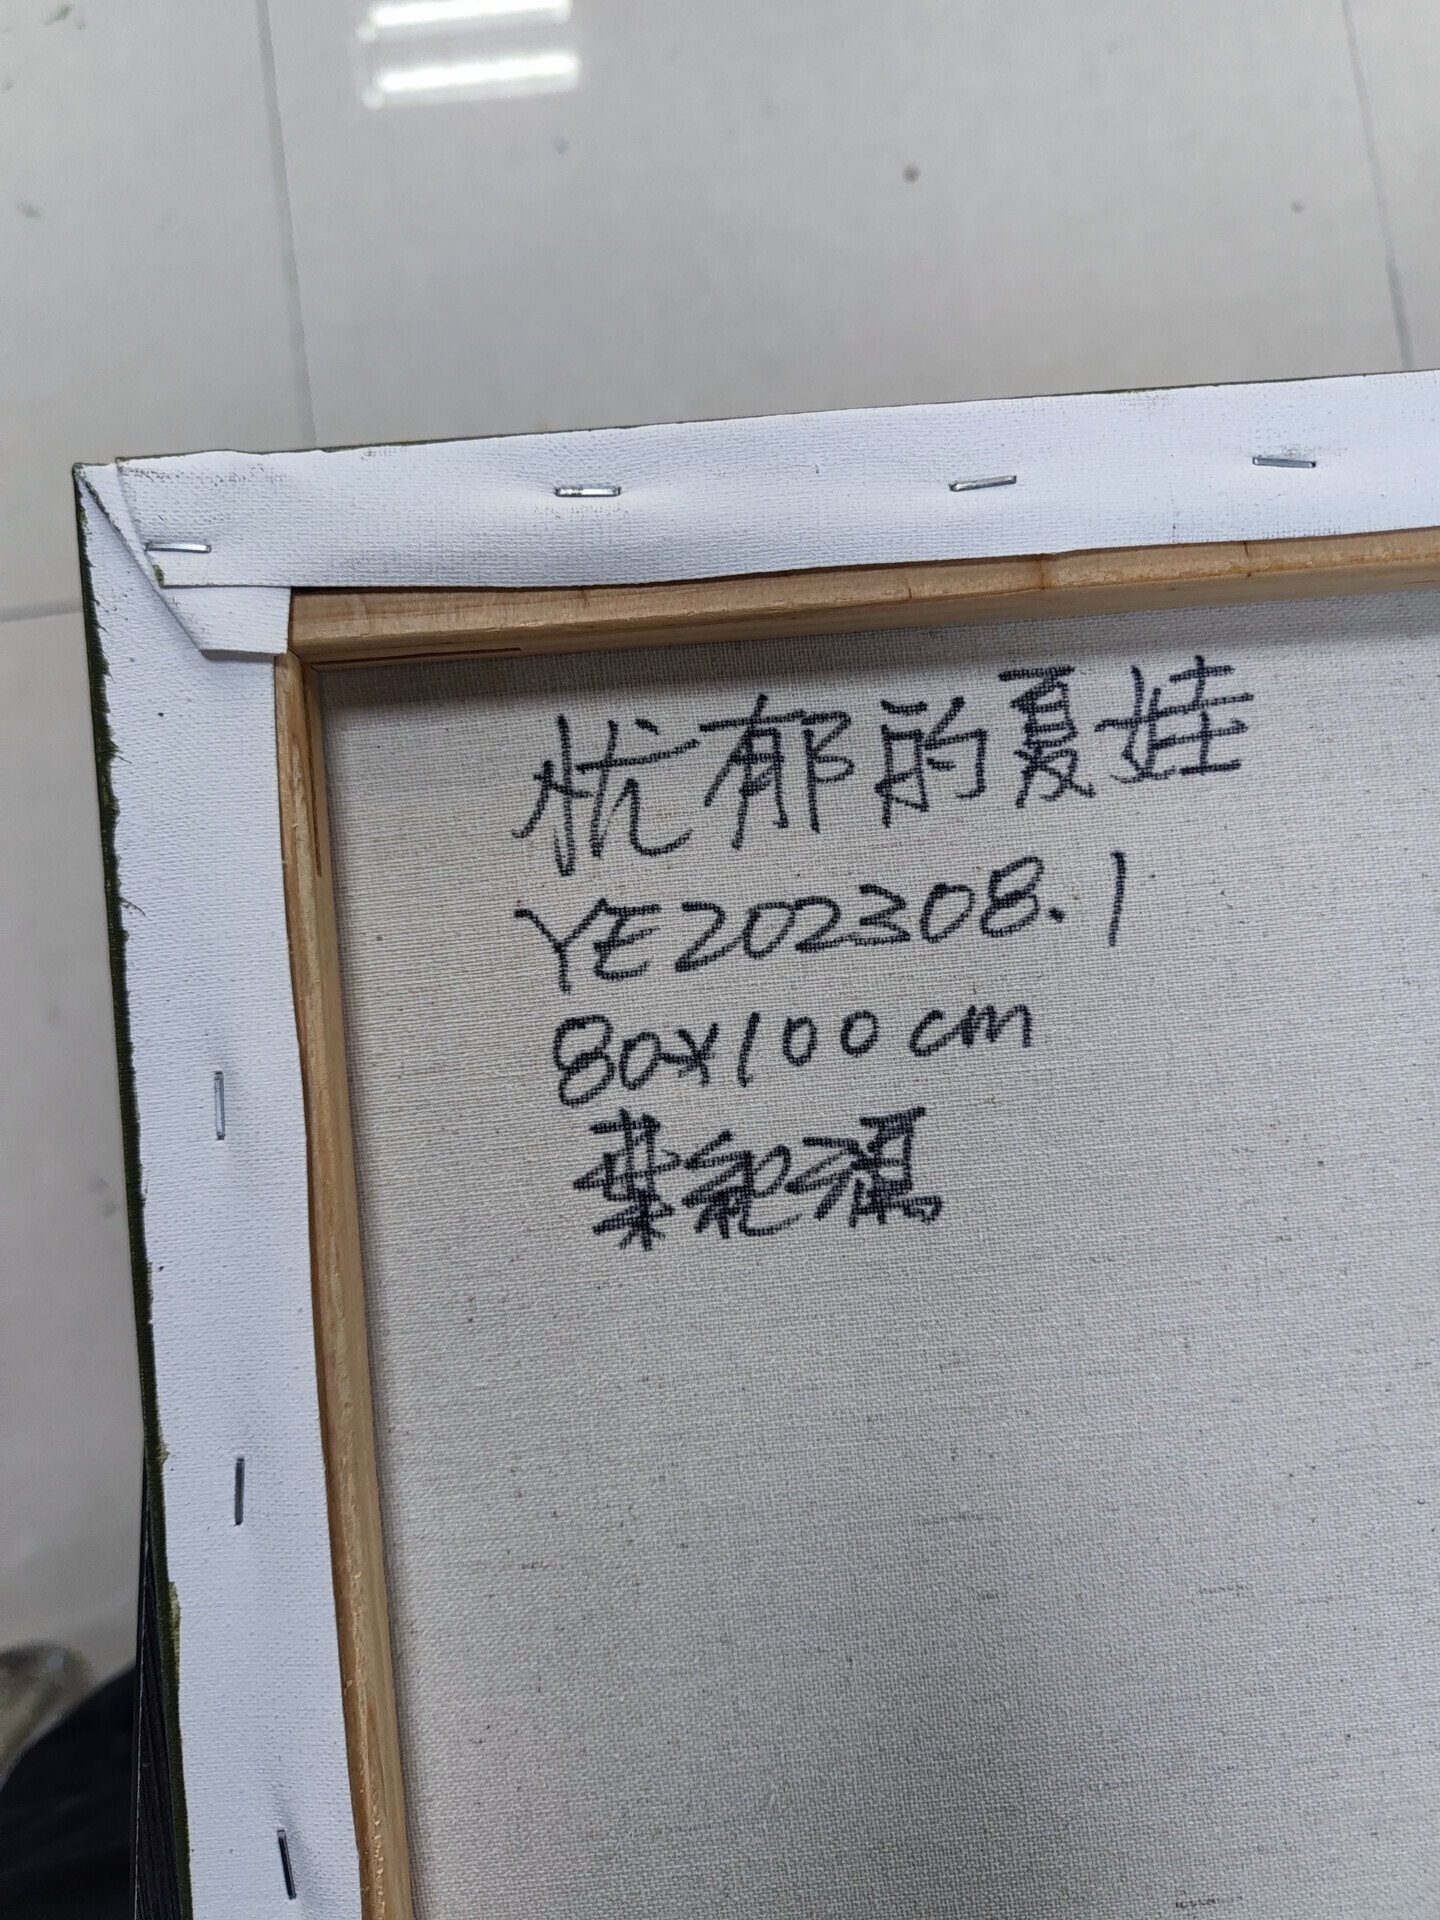 忧郁的夏娃
YE202308.1
80x100cm
葉紀